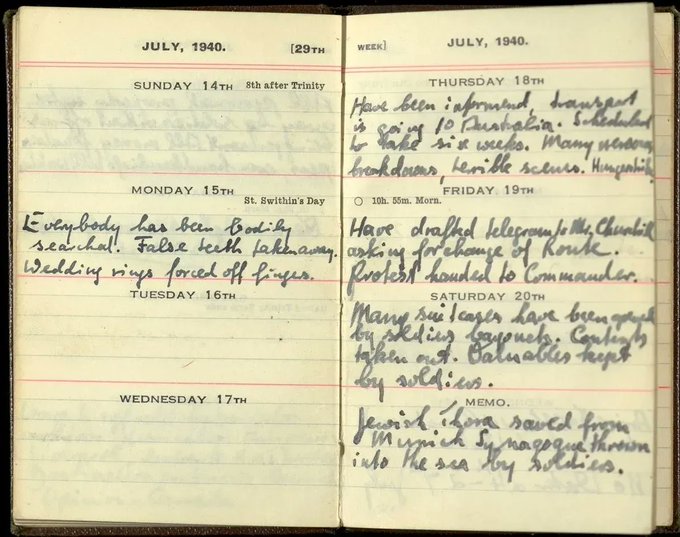 JULY, 1940. [29TH
SUNDAY 14TH 8th after Trinity
MONDAY 15TH
St. Swithin's Day
Everybody has been bodily
searched. False teeth taken away.
Wedding rings forced off finges.
TUESDAY 16TH
WEDNESDAY 17TH
WEEK] JULY, 1940.
THURSDAY 18TH
Have been informend, transport
is going to Australia. Scheduled
to take six weeks. Many nervous
breakdowns, terrible scenes. Hungerstrike
FRIDAY 19TH
10h. 55m. Morn.
Have drafted telegram to Mr. Churchill
asking for change of Route.
Protest handed to Commander.
SATURDAY 20TH
Many suitcases have been opened
by soldiers bayonets. Contents
taken out. Valuables kept
by soldiers.
MEMO.
Jewish Thora saved from
Munich Synagogue thrown
into the sea by soldiers.